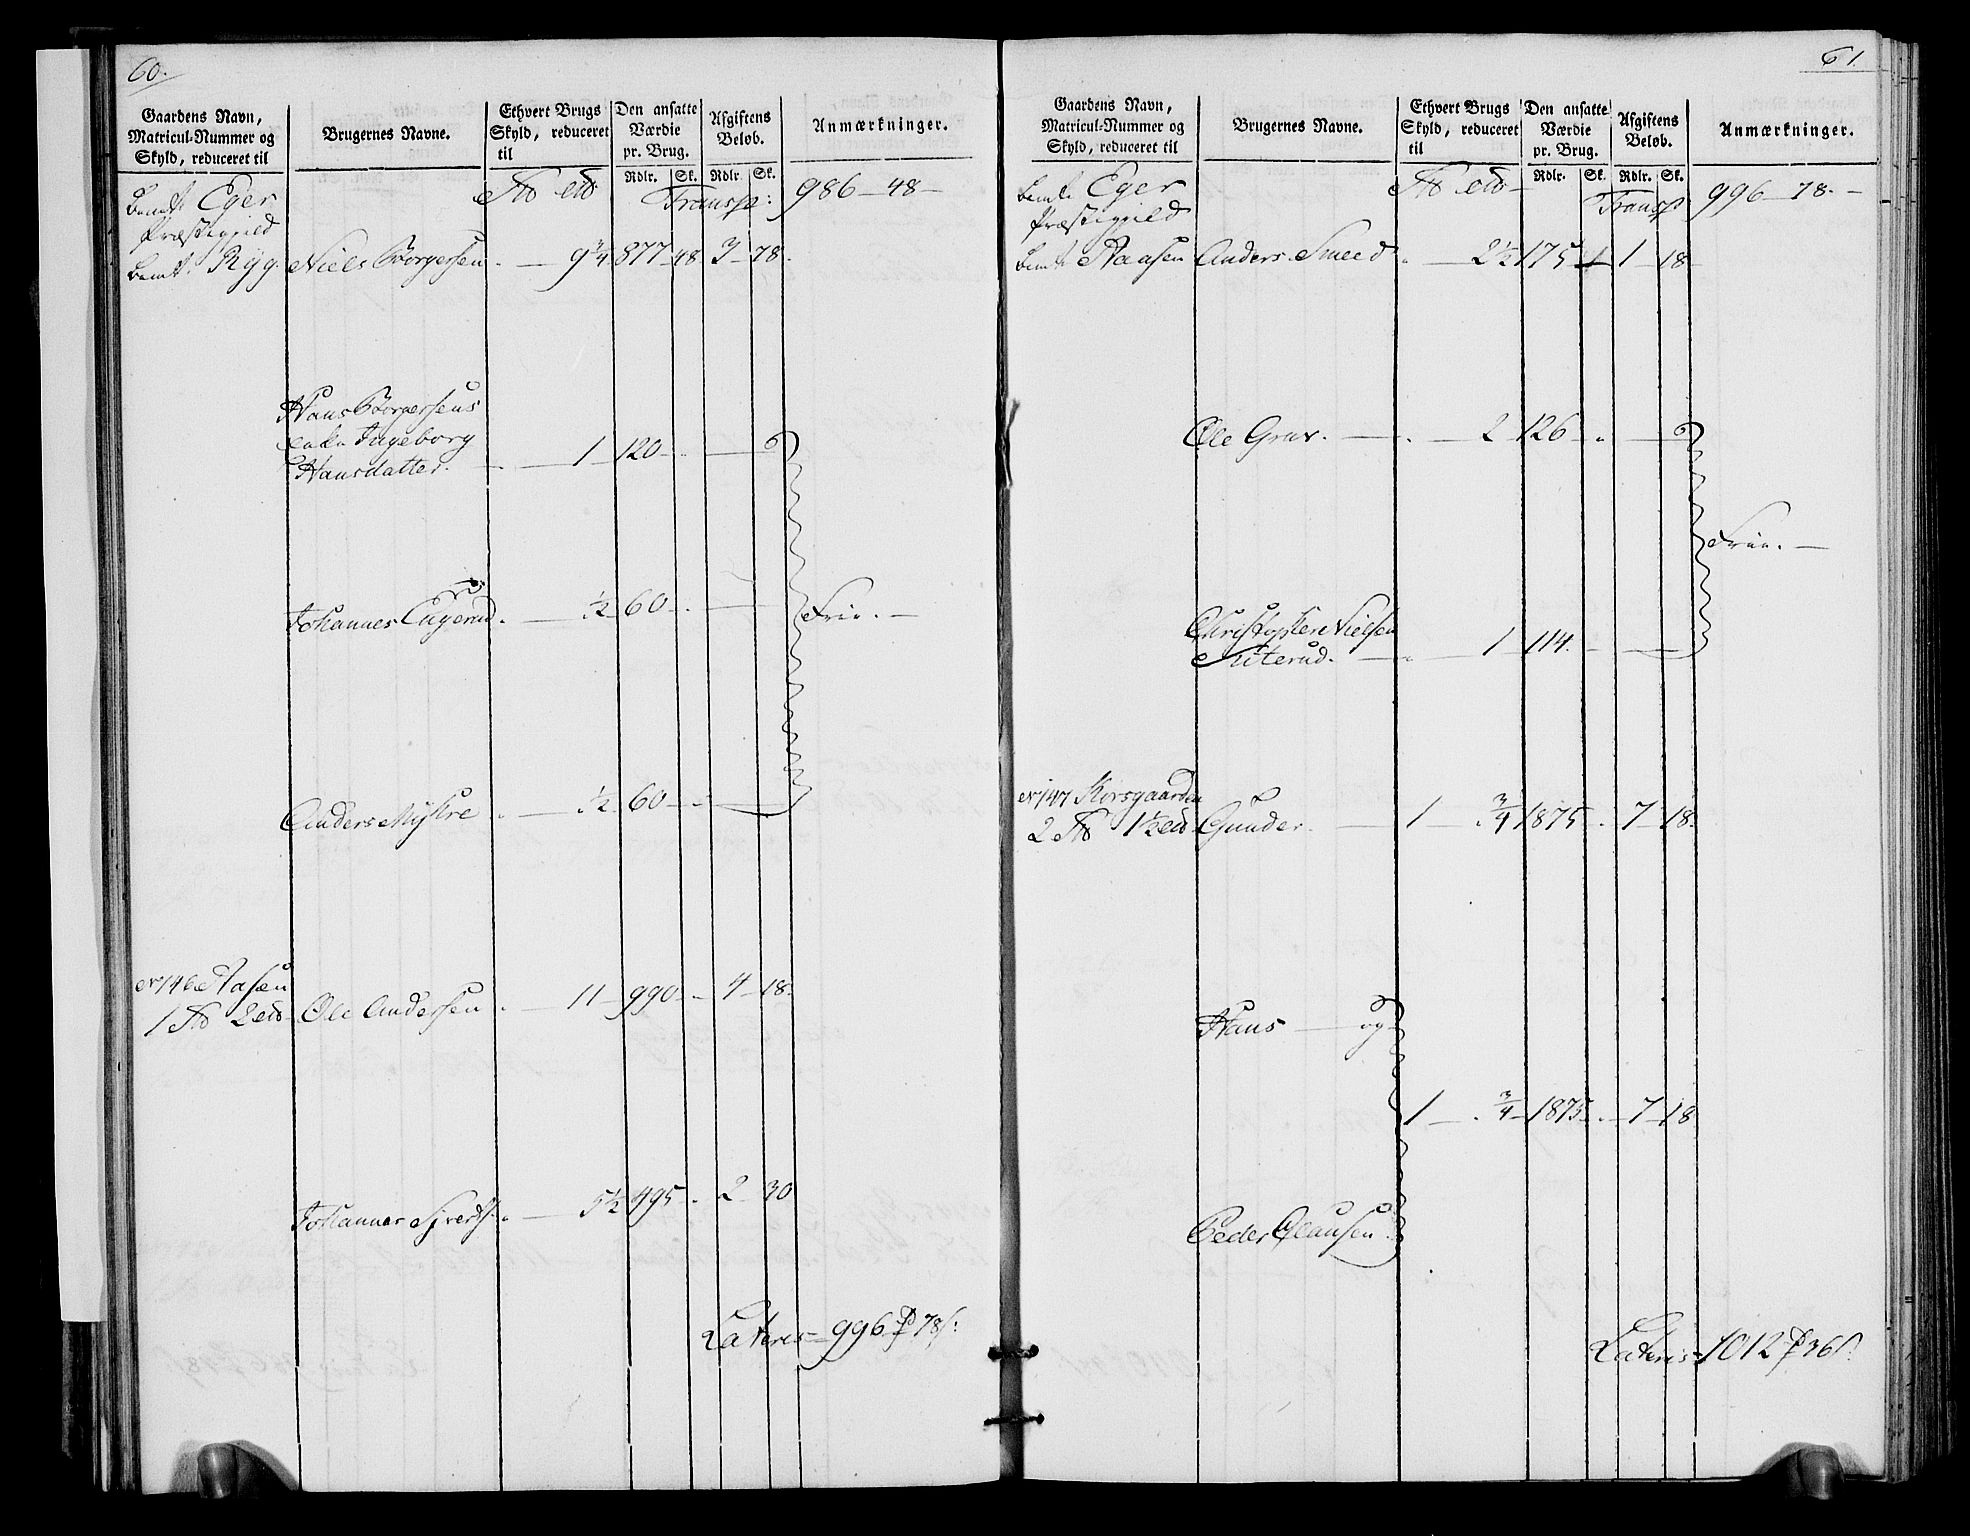 60.
Gaardens Navn, Matricul-Nummer og Skyld, reduceret til
Brugernes Navne.
Ethvert Brugs Skyld, reduceret til
Den ansatte Værdie pr. Brug.
Afgiftens Beløb.
Anmærkninger.
Rdlr. Sk. Rdlr. Sk.
bemte Eger Transp: 986 – 48 –
Præstegield
bemte Ryg. Niels Borgersen . – 9 3/4 877 48 3 78.
Hans Borgersens
Enke Ingeborg
Hansdatter. – 1 120 –
Johannes Engerud. – 1/2 60 – Frie. –
Anders Myhre . – 1/2 60 –
No 146 Aasen
1 2 Ole Andersen . – 11 – 990 – 4 – 18.
Johannes Siverts. – 5 1/2 495 – 2 30
Lateris – 996 78
61.
Gaardens Navn, Matricul-Nummer og Skyld, reduceret til
Brugernes Navne.
Ethvert Brugs Skyld, reduceret til
Den ansatte Værdie pr. Brug.
Afgiftens Beløb.
Anmærkninger.
Rdlr. Sk. Rdlr. Sk.
bemte Eger Transp 996 – 78. –
Præstegield
bemte Aasen Anders Smed . – 2 1/2 175 1 18
Ole Grav. – . – 2 – 126 – .
Frie. –
Christopher Nielsen
Suterud. – 1 – 114.
No 147 Korsgaarden
2 1 1/2 Gunder. – 1 – . 3/4 1875 . 7 – 18.
Hans – og
1 – . 3/4 – 1875 . – 7 – 18
Peder Clausen.
Lateris – 1012 36